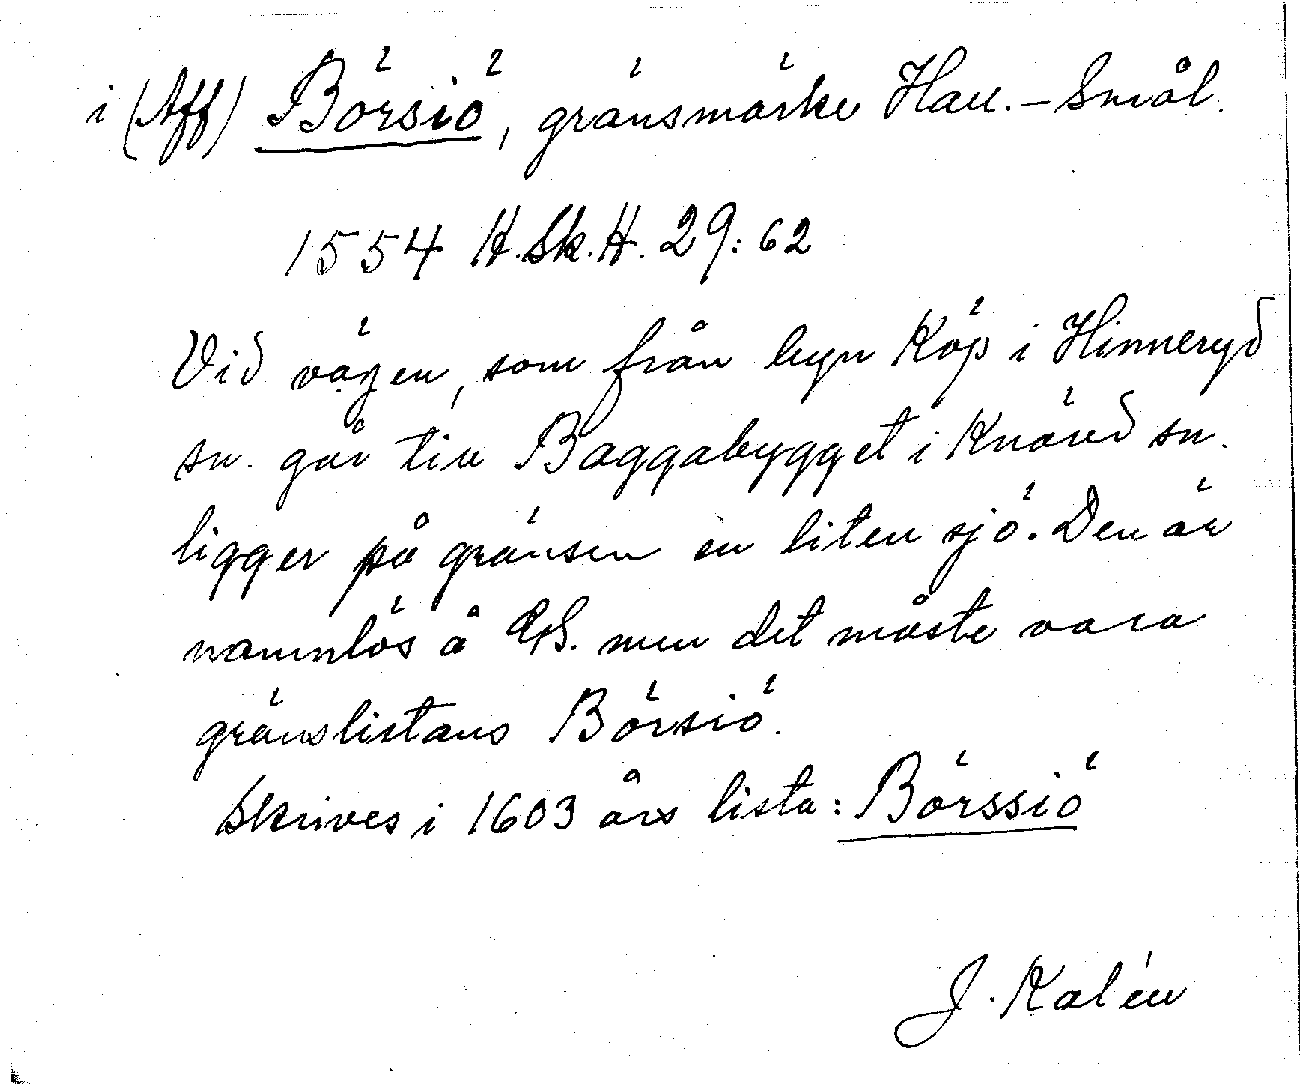 i (Aff) Börsiö, gränsmärke Hall. – Smål.
1554 H.Sk.H. 29:62
Vid vägen, som från byn Köp i Hinneryd
sn. går till Baggabygget i Knäred sn.
ligger på gränsen en liten sjö. Den är
namnlös å GS. men det måste vara
gränslistans Börsiö.
Skrives i 1603 års lista: Börssiö
J. Kalén